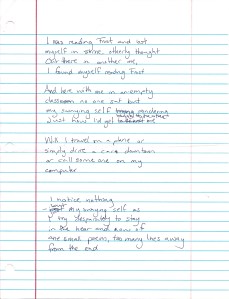 I was reading Frost and lost
myself in some utterly thought
that there is another me,
I found myself reading Frost

And here with me in an empty
classroom no one sat but
my swaying self
just how I'd get

Will I travel on a plane or
simply drive a car down town
or call some one on my
computer

I notice nothing
my swaying self as
I try desperately to stay
in the near and now of
one small poem, too many lines away
from the end